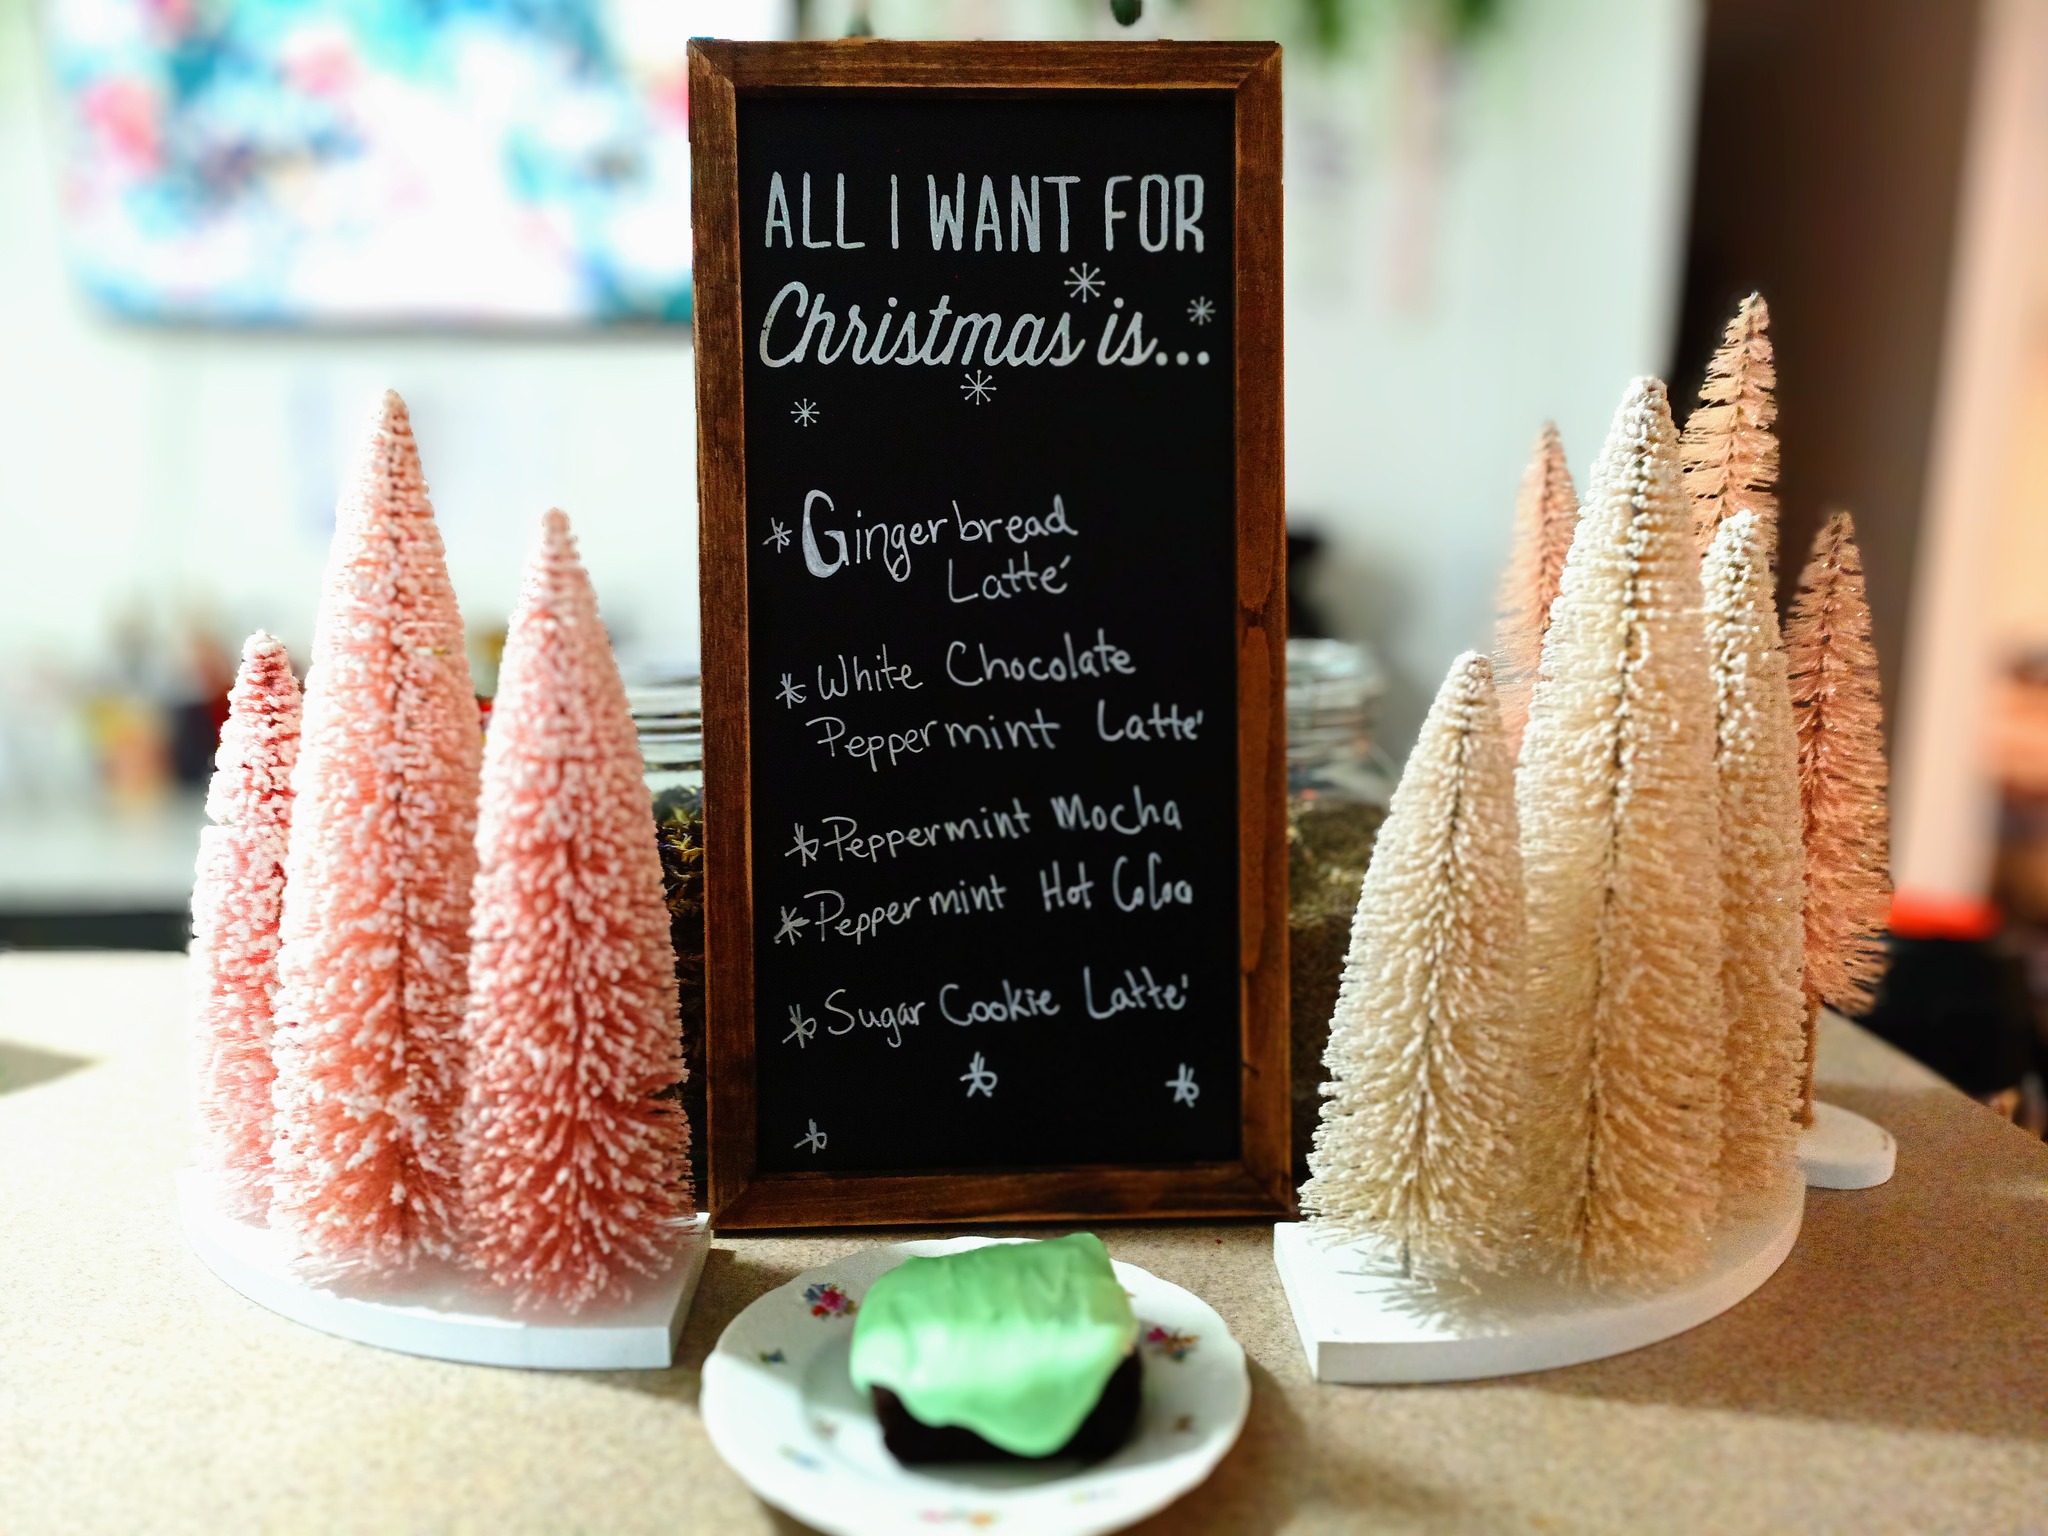 ALL I WANT FOR
Christmas is...
Gingerbread
Latté
White Chocolate
Peppermint Latté
Peppermint Mocha
Peppermint Hot CoCoa
Sugar Cookie Latté